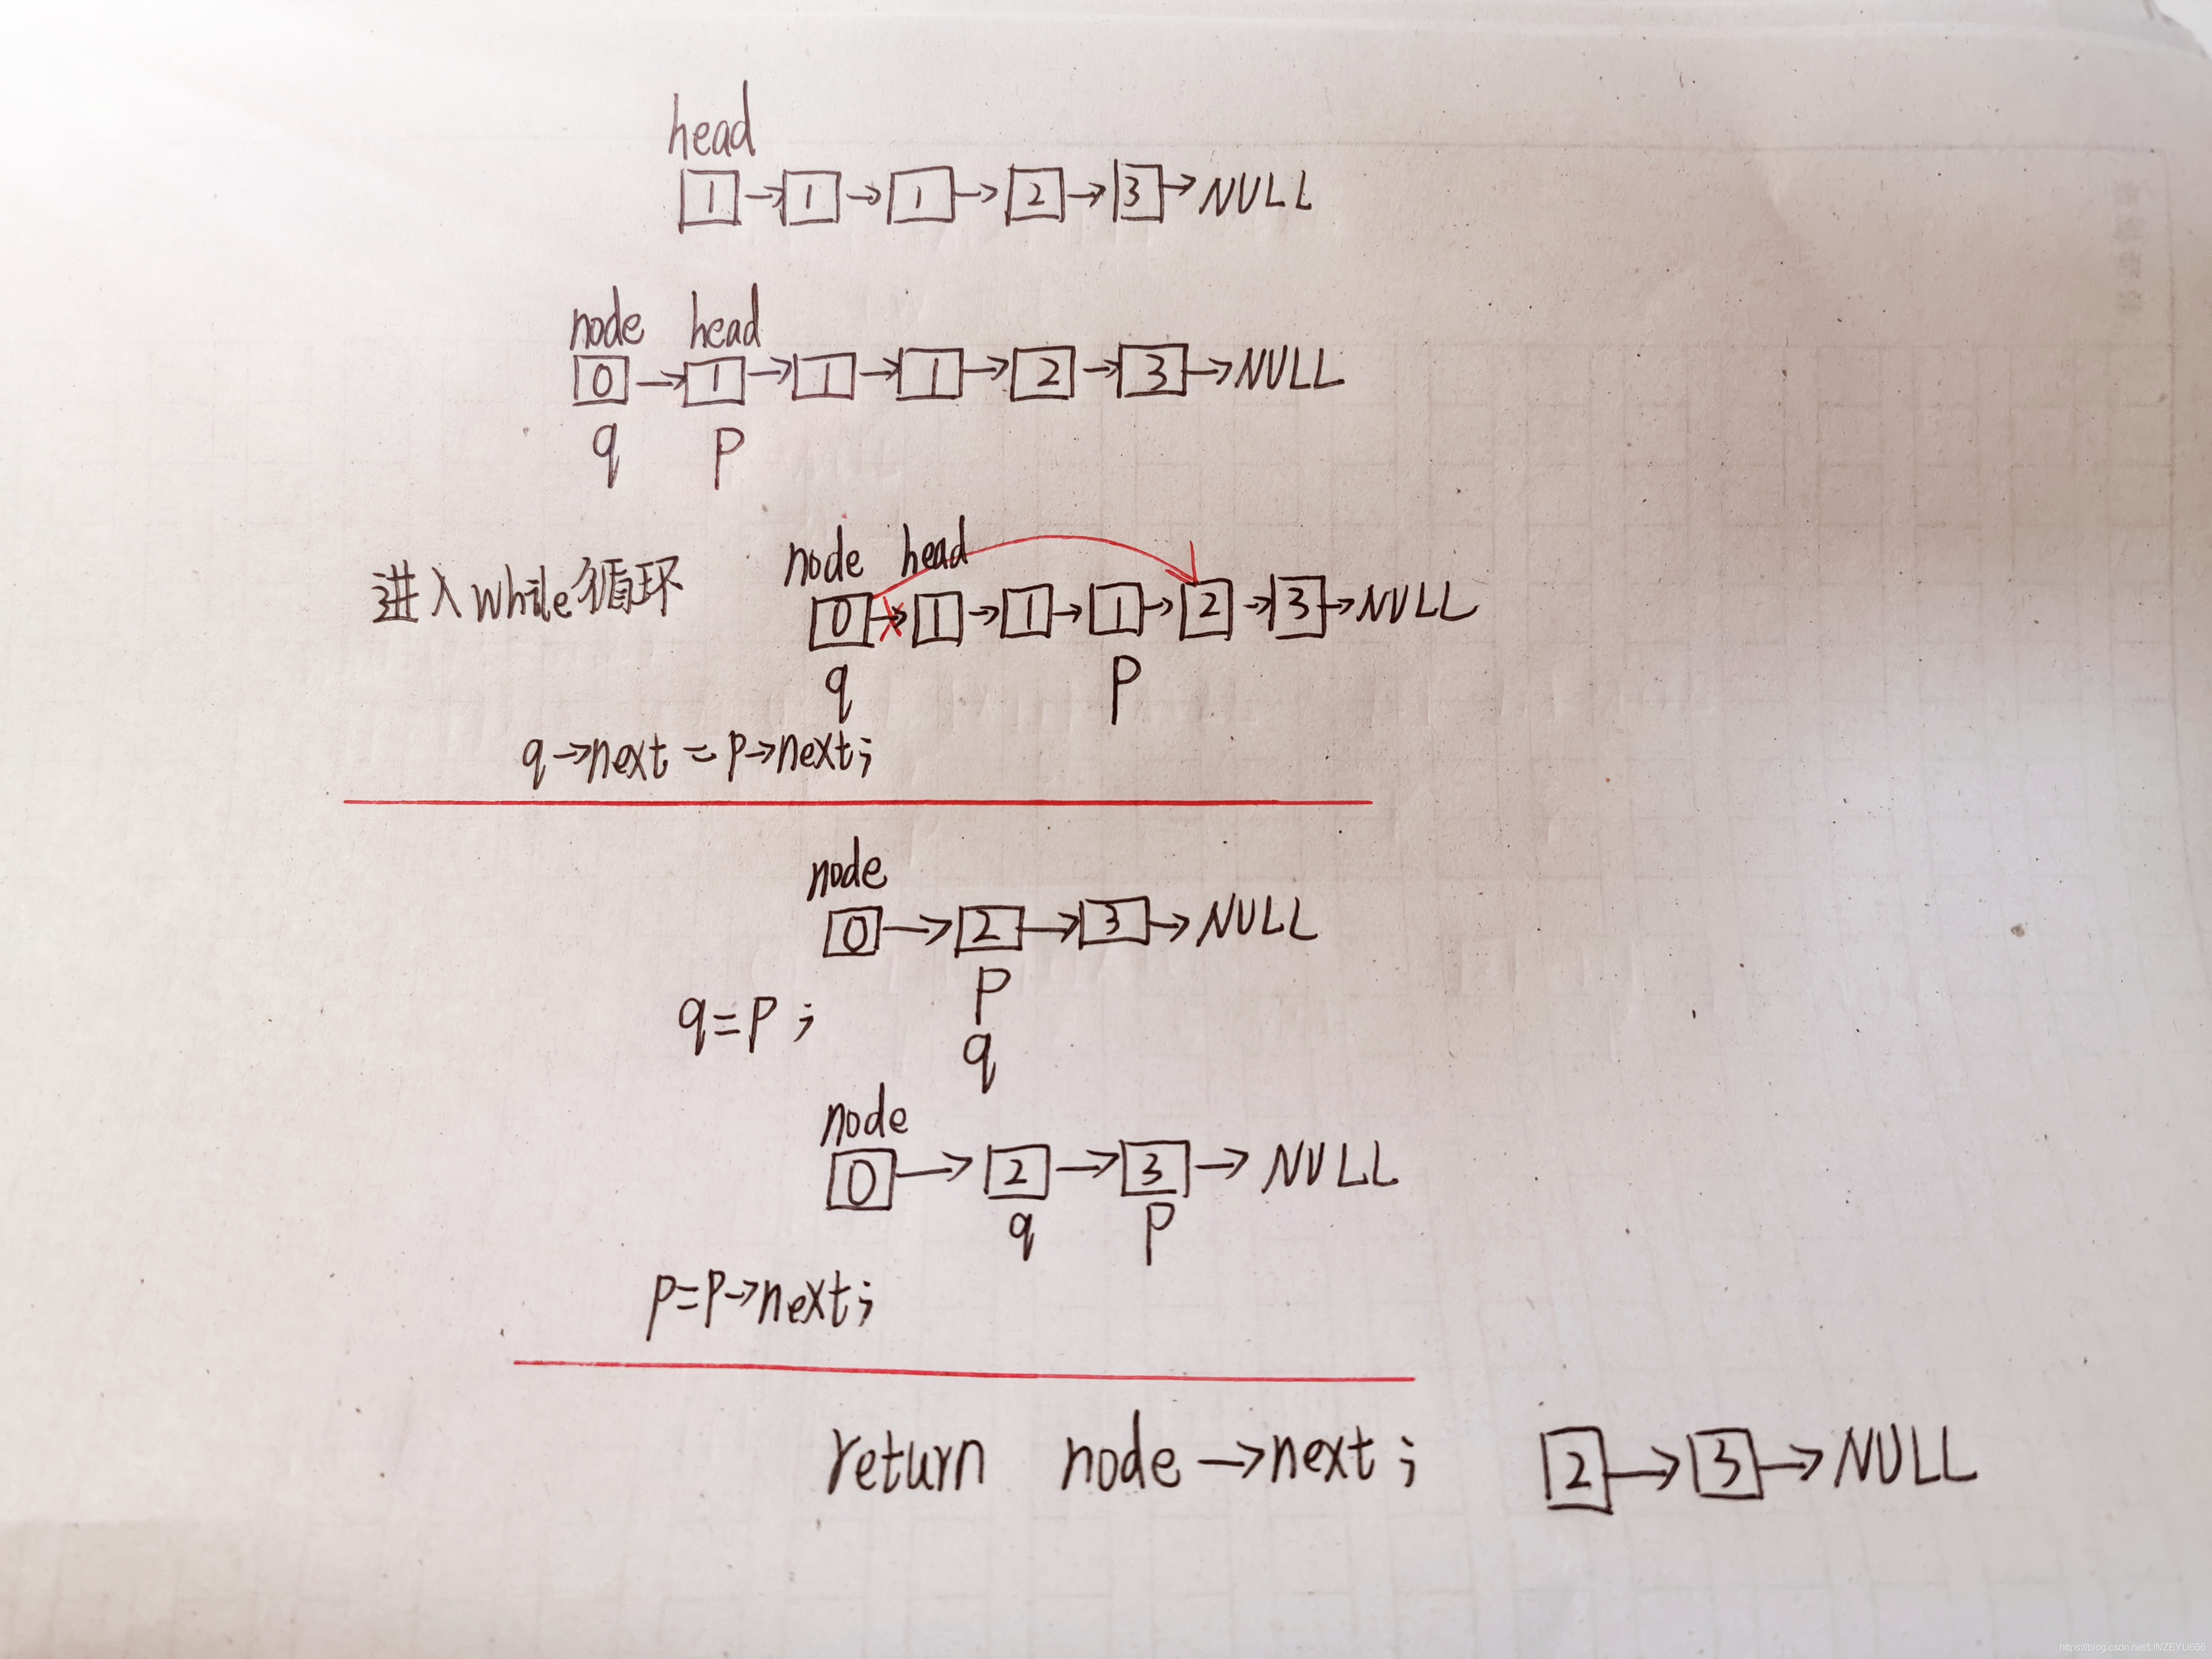 head
1 → 1 → 1 → 2 → 3 → NULL
node head
0 → 1 → 1 → 1 → 2 → 3 → NULL
q p
node head
进入while循环 0 → 1 → 1 → 1 → 2 → 3 → NULL
q p
q→next = p→next;
node
0 → 2 → 3 → NULL
p
q=p;
q
node
0 → 2 → 3 → NULL
q p
p=p→next;
return node→next; 2 → 3 → NULL
https://blog.csdn.net/LINZEYU666